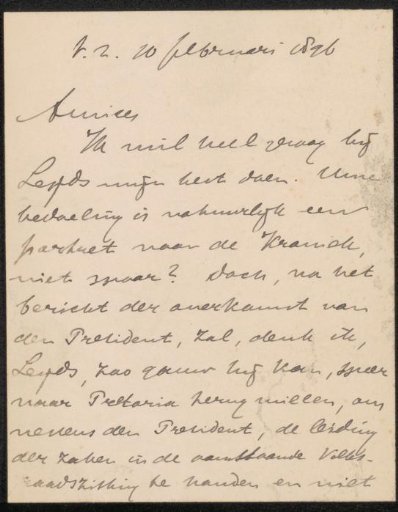 10 februari 1896
Amices
Ik wil heel graag bij
Leyds mijn best doen. Uwe
bedoeling is natuurlijk een
portret naar de Kroniek,
niet waar? Doch, na het
bericht der overkomst van
den President, zal, denk ik,
Leyds, zoo gauw hij kan, weer
naar Pretoria terug willen, om
nevens den President, de leiding
der zaken in de aanstaande Volks-
raadszitting te houden en niet